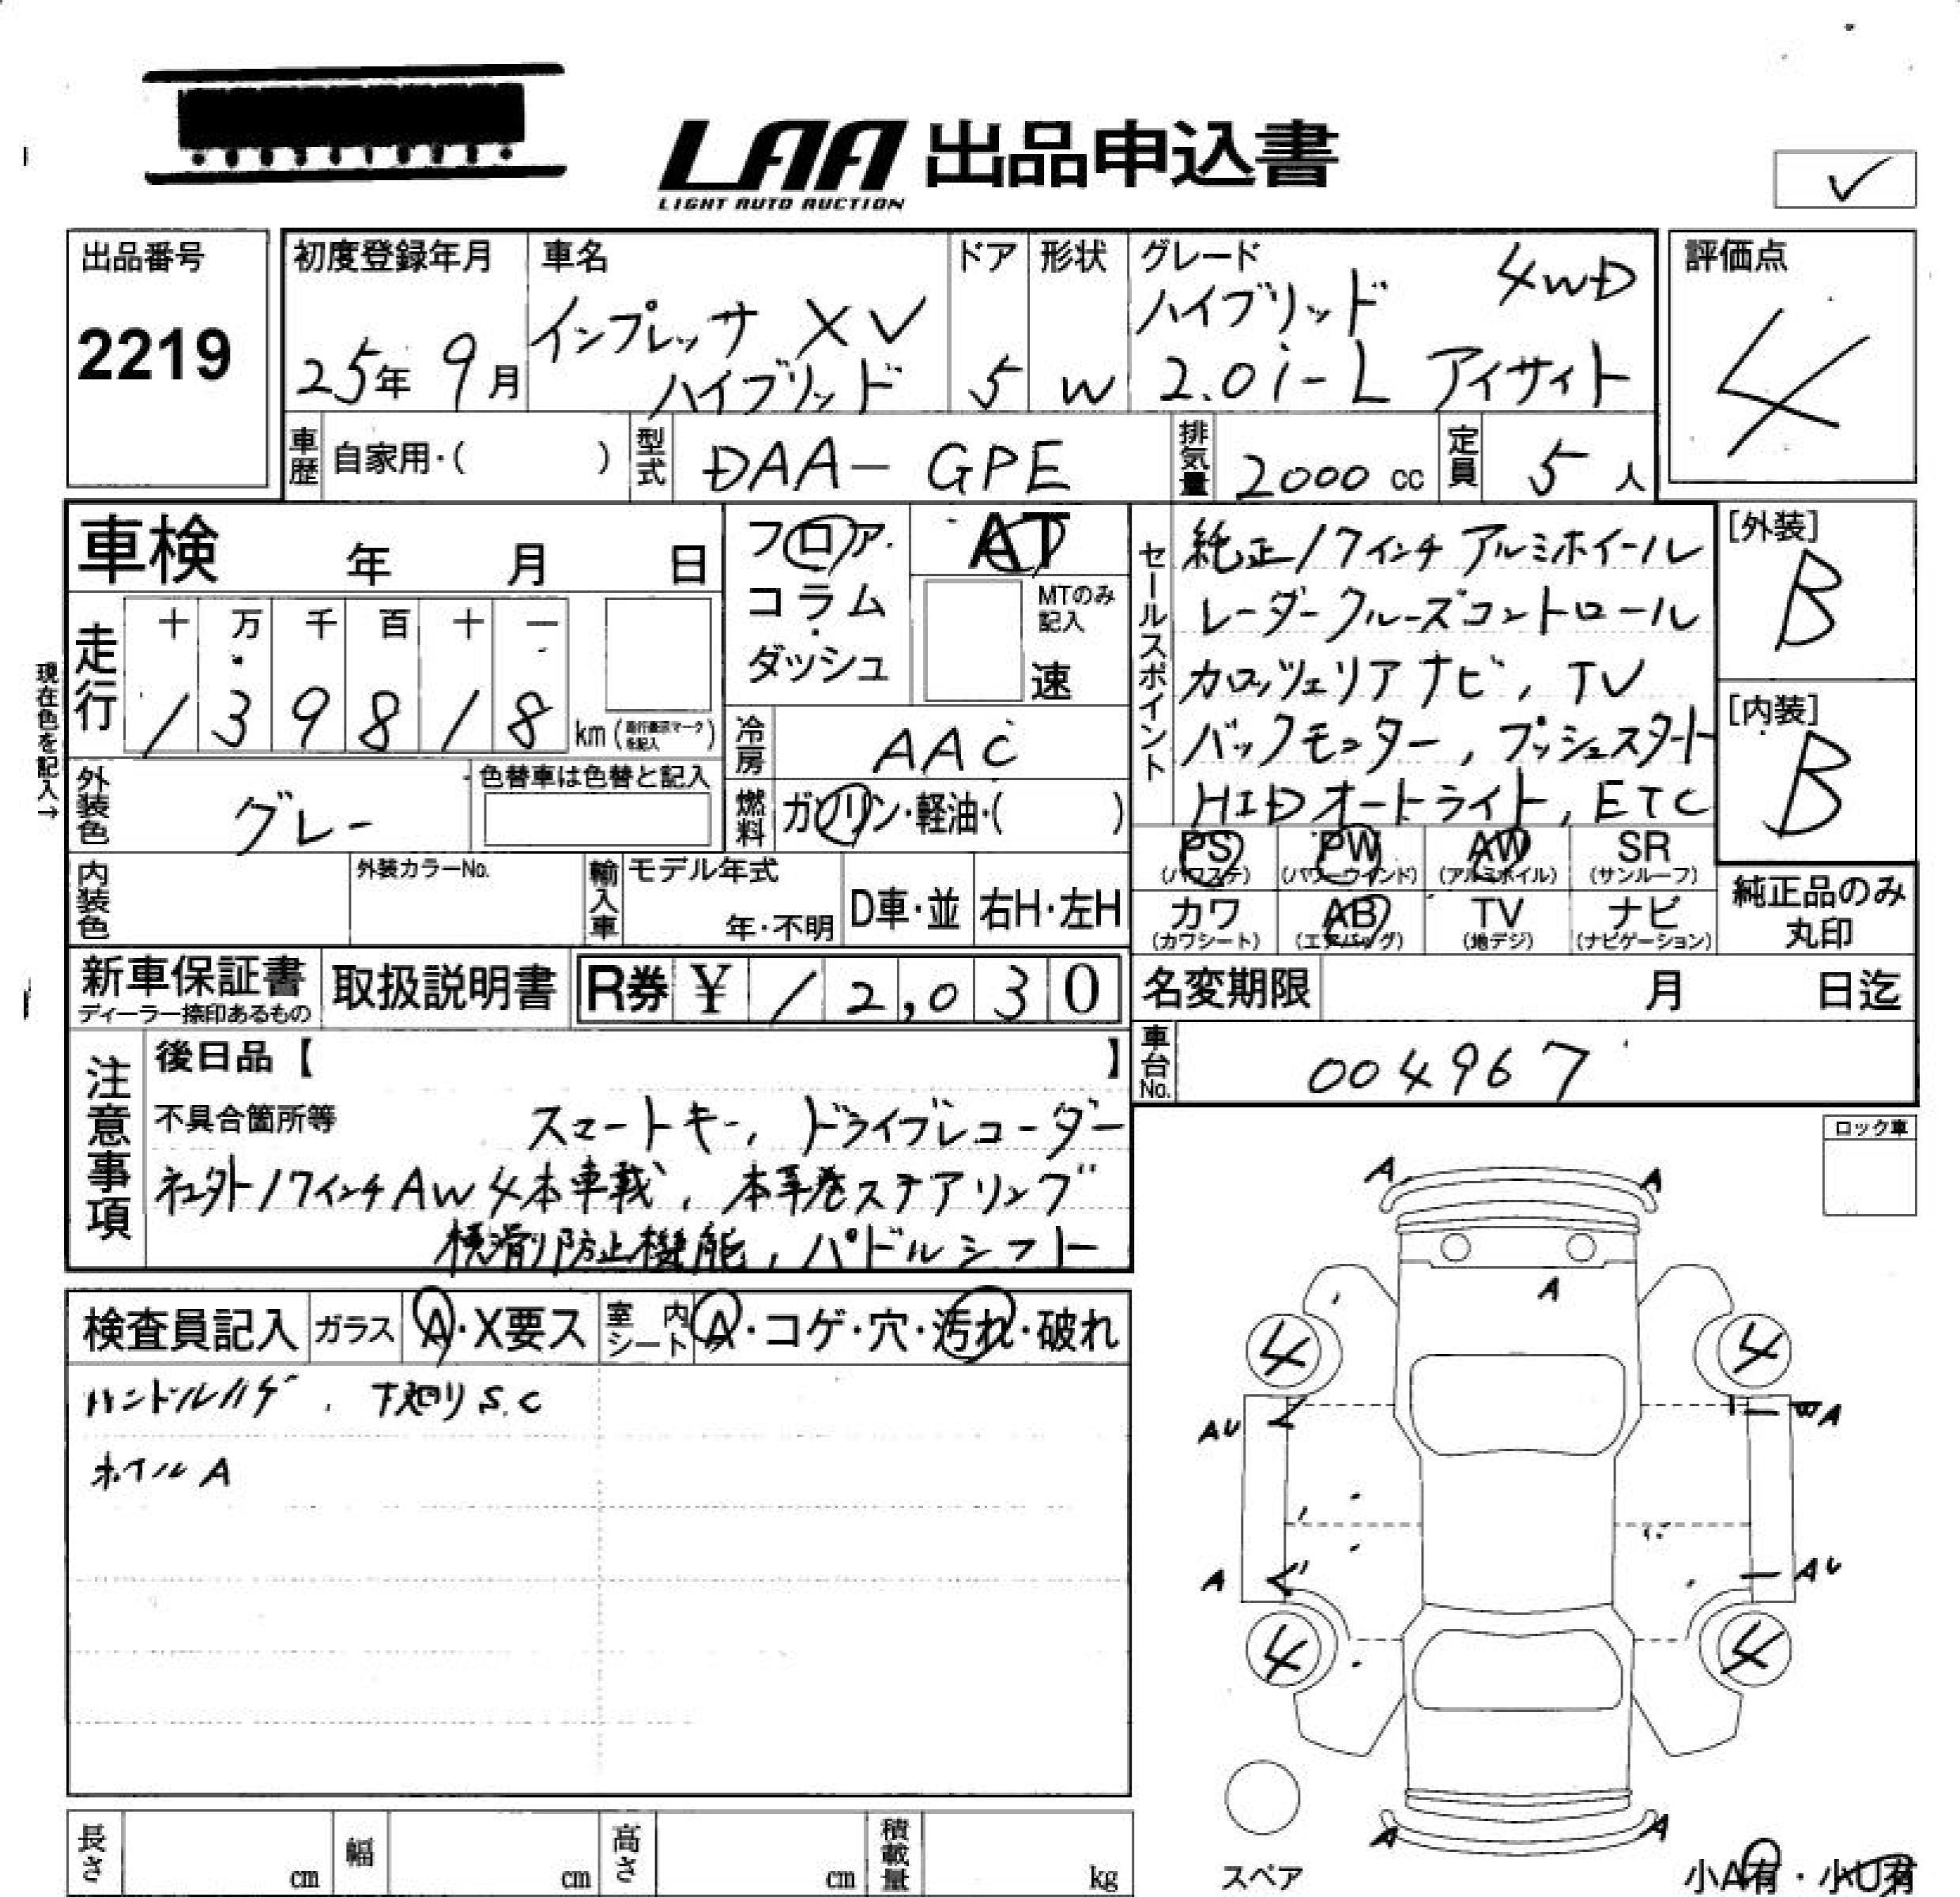 LAA 出品申込書
LIGHT AUTO AUCTION
出品番号
2219
初度登録年月
25年 9月
車名
インプレッサ XV
ハイブリッド
ドア
5
形状
W
グレード
ハイブリッド 4WD
2.0i-L アイサイト
評価点
4
車歴 自家用・( )
型式 DAA-GPE
排気量 2000 cc
定員 5 人
車検 年 月 日
フロア・
コラム
・
ダッシュ
AT
MTのみ
記入
速
現在色を記入→
走行
十 万 千 百 十 一
1 3 9 8 1 8 km
冷房 AAC
燃料 ガソリン・軽油・( )
外装色 グレー
色替車は色替と記入
内装色
外装カラーNo.
輸入車
モデル年式
年・不明
D車・並
右H・左H
セールスポイント
純正17インチアルミホイール
レーダークルーズコントロール
カロッツェリアナビ, TV
バックモニター, プッシュスタート
HIDオートライト, ETC
[外装]
B
[内装]
B
PS PW AW SR
(パワステ) (パワーウインド) (アルミホイル) (サンルーフ)
カワ AB TV ナビ
(カワシート) (エアバッグ) (地デジ) (ナビゲーション)
純正品のみ
丸印
新車保証書
ディーラー捺印あるもの
取扱説明書
R券 ¥ 12,030
名変期限 月 日迄
車台No. 004967
注意事項
後日品【 】
不具合箇所等 スマートキー, ドライブレコーダー
社外17インチAW4本車載, 本革巻ステアリング
横滑り防止機能, パドルシフト
ロック車
検査員記入
ガラス A・X要ス
室内シート A・コゲ・穴・汚れ・破れ
ハンドルハゲ, 下廻りS.C
ホイルA
A A
A
4 4
AU WA
A AU
4 4
A A
スペア
小A有・小U有
長さ cm
幅 cm
高さ cm
積載量 kg